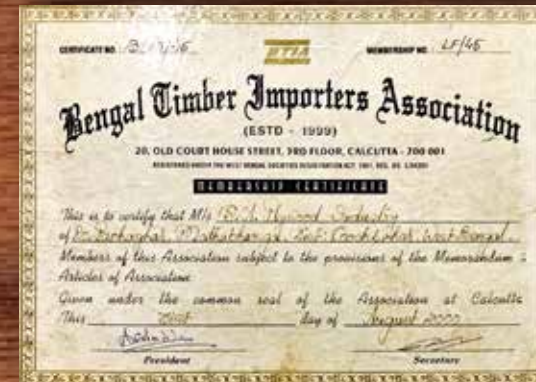 CERTIFICATE NO.
MEMBERSHIP NO. LF/45
Bengal Timber Importers Association
(ESTD - 1999)
20, OLD COURT HOUSE STREET, 3RD FLOOR, CALCUTTA - 700 001
REGISTERED UNDER THE WEST BENGAL SOCIETIES REGISTRATION ACT 1961, REG. NO.
MEMBERSHIP CERTIFICATE
This is to certify that M/s Plywood Industry
of West Bengal
Members of this Association subject to the provisions of the Memorandum &
Articles of Association
Given under the common seal of the Association at Calcutta
This day of August 2000
President Secretary